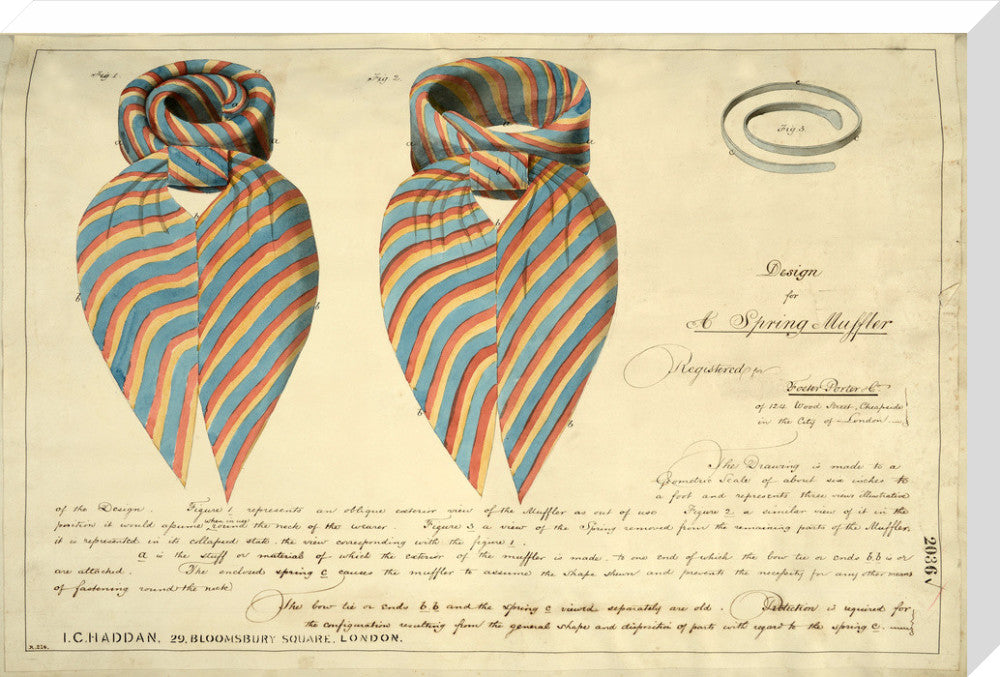 Fig. 1.
Fig. 2.
Fig. 3.
a
a
a
b
b
b
b
a
a
a
b
b
b
b
c
c
c
Design
for
A Spring Muffler
Registered for
Foster Porter & Co.
of 124 Wood Street, Cheapside
in the City of London
The Drawing is made to a
Geometric Scale of about six inches to
a foot and represents three views illustrative
of the Design. Figure 1 represents an oblique exterior view of the Muffler as out of use Figure 2 a similar view of it in the
when in use
position it would assume round the neck of the wearer. Figure 3 a view of the Spring removed from the remaining parts of the Muffler.
it is represented in its collapsed state, the view corresponding with the figure 1.
a is the stuff or material of which the exterior of the muffler is made, to one end of which the bow tie or ends b.b is or
are attached. The enclosed spring c causes the muffler to assume the shape shewn and prevents the necessity for any other means
of fastening round the neck
The bow tie or ends b.b and the spring c viewed separately are old. Protection is required for
the configuration resulting from the general shape and disposition of parts with regard to the spring c.
I.C. HADDAN. 29, BLOOMSBURY SQUARE, LONDON.